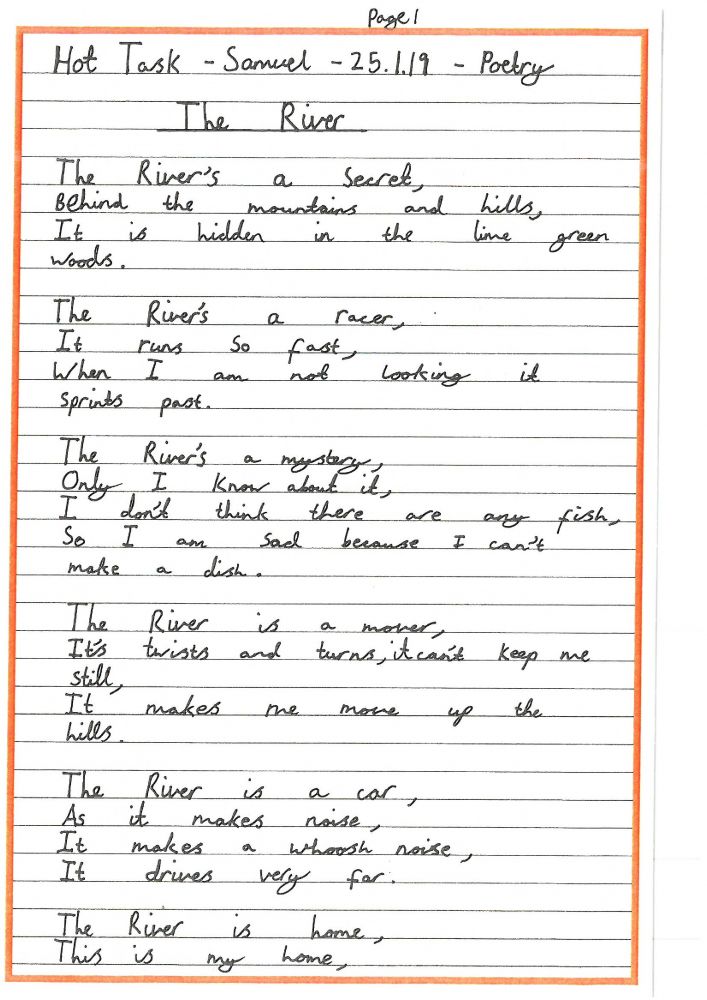 Page 1
Hot Task - Samuel - 25.1.19 - Poetry
The River
The River's a Secret,
Behind the mountains and hills,
It is hidden in the lime green
woods.
The River's a racer,
It runs so fast,
When I am not looking it
sprints past.
The River's a mystery,
Only I know about it,
I don't think there are any fish,
So I am sad because I can't
make a dish.
The River is a mover,
It's twists and turns, it can't keep me
still,
It makes me move up the
hills.
The River is a car,
As it makes noise,
It makes a whoosh noise,
It drives very far.
The River is home,
This is my home,